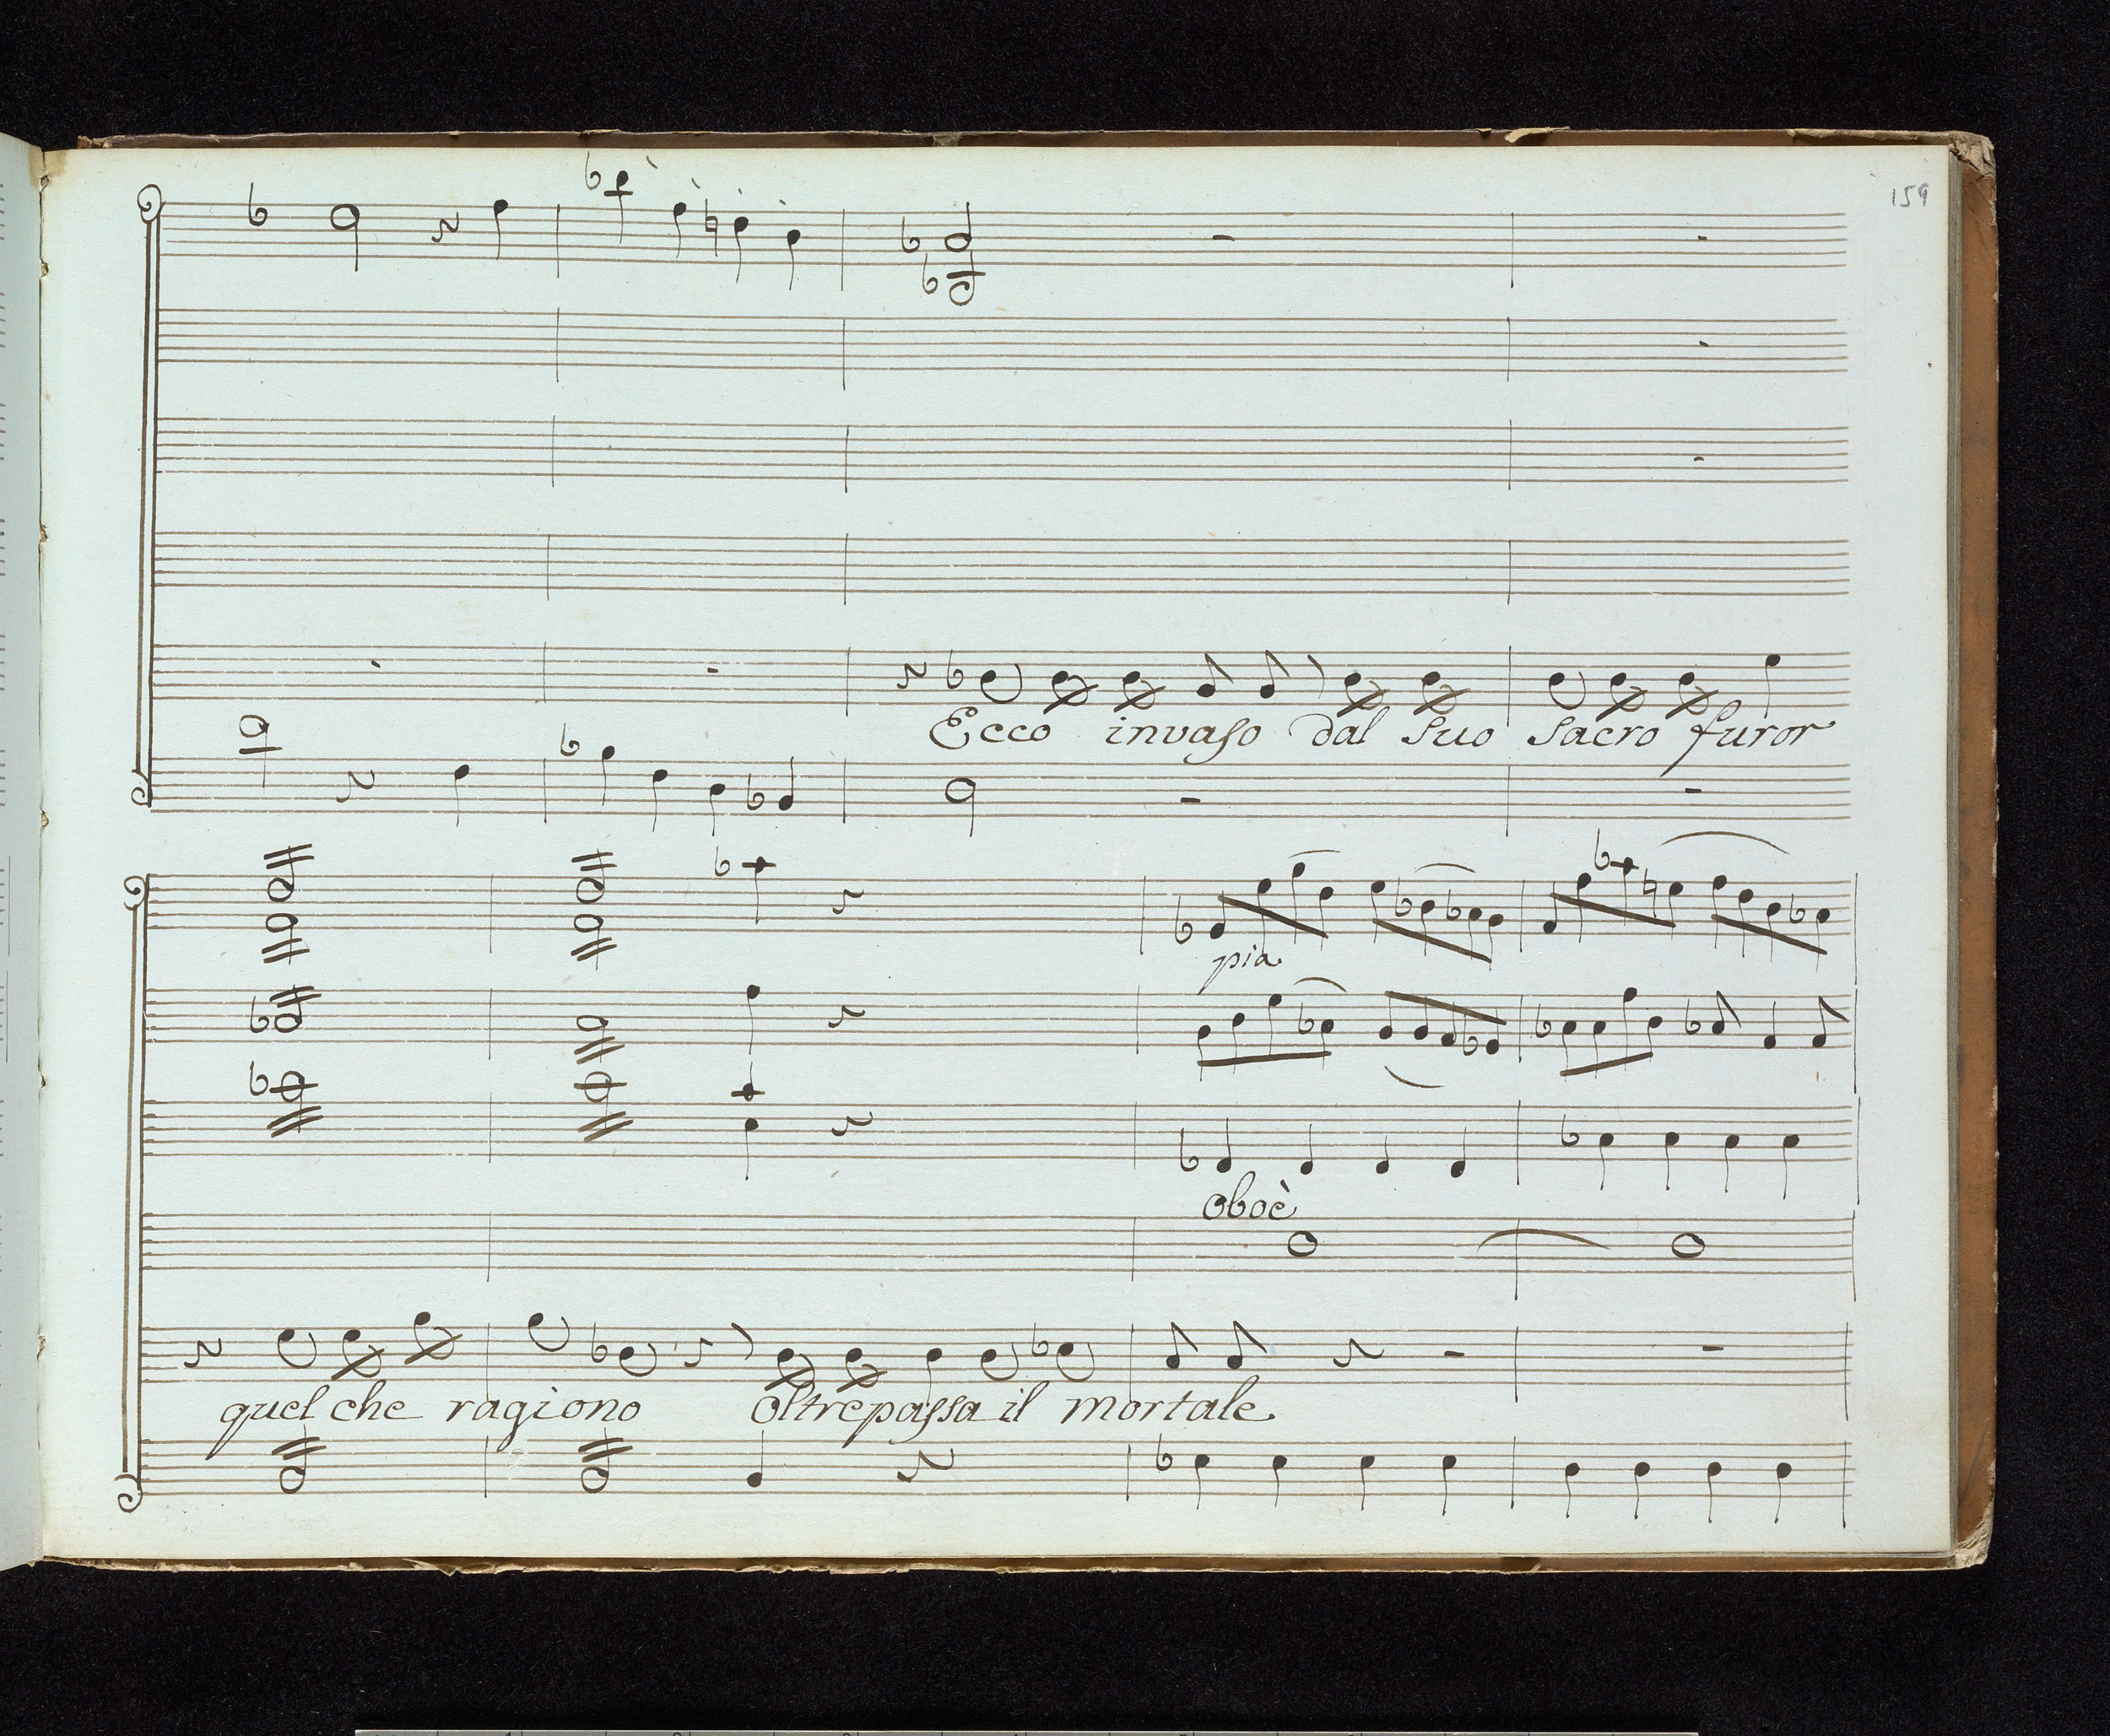 159
Ecco invaso dal suo sacro furor
pia
oboè
quel che ragiono oltrepassa il mortale